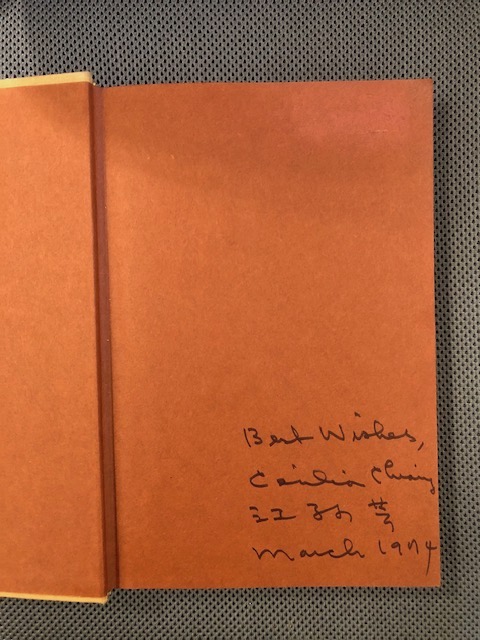 Best Wishes,
Cecilia Chiang
江孫芸
March 1974